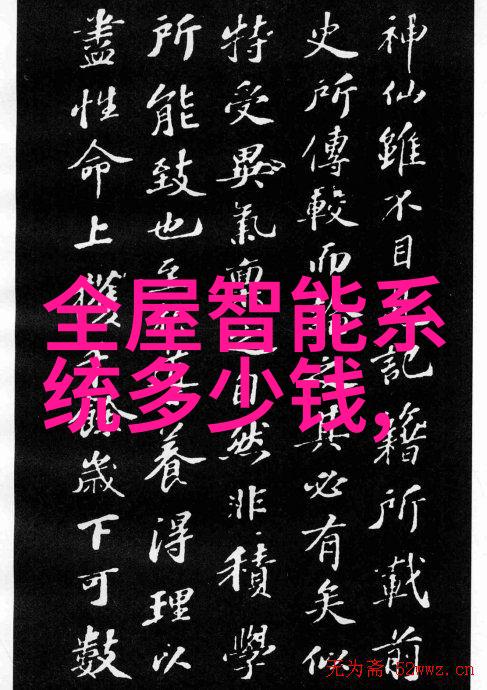 神仙雖不目記籍所載前
史所傳較而之其必有矣似
特受異氣稟之自然非積學
所能致也至養得理以
盡性命上獲餘歲下可數
全屋智能系
统多少钱,
无为斋 52wwz.cn